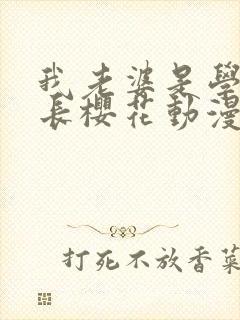 我老婆是學
長櫻花動漫
打死不放香菜